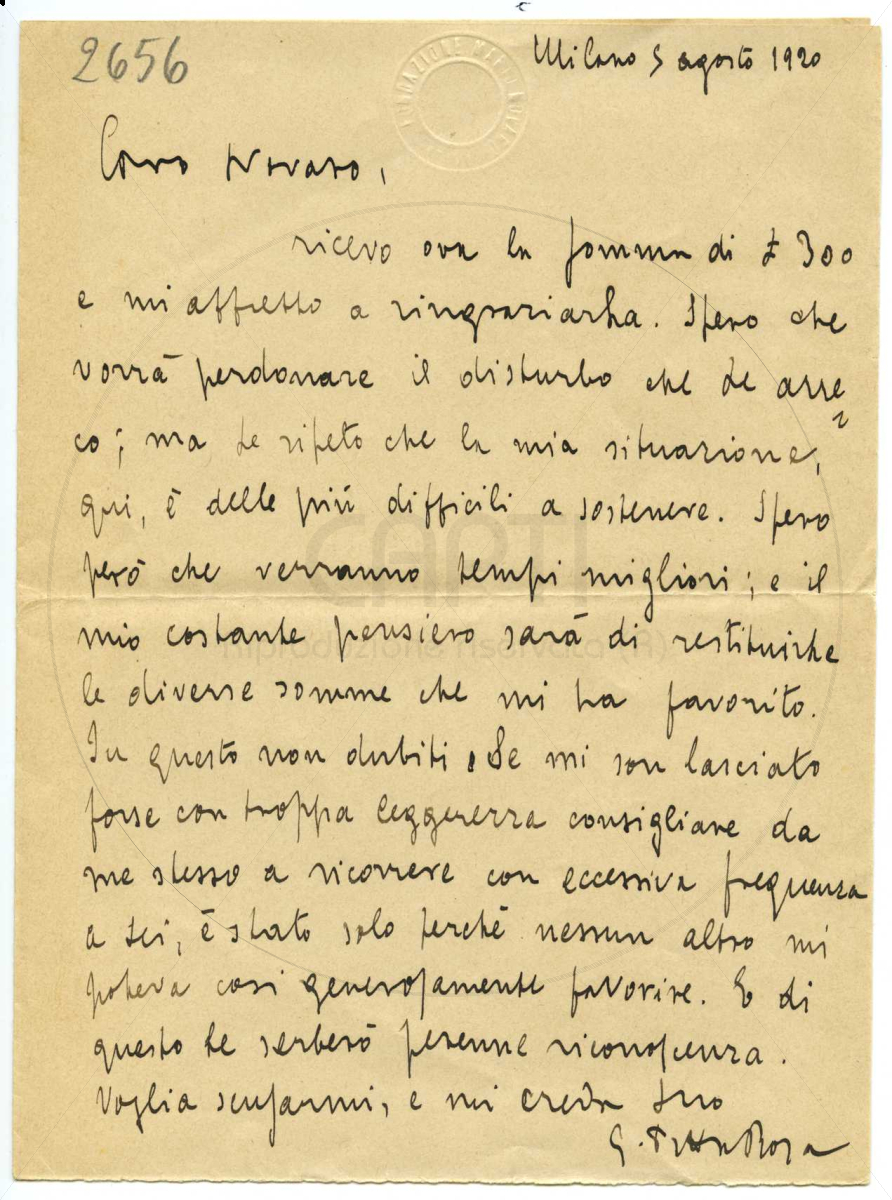 2656
Milano 5 agosto 1920
Caro Novaro,
ricevo ora la somma di £ 300
e mi affretto a ringraziarLa. Spero che
vorrà perdonare il disturbo che Le arre
co; ma Le ripeto che la mia situazione,
qui, è delle più difficili a sostenere. Spero
però che verranno tempi migliori; e il
mio costante pensiero sarà di restituirLe
le diverse somme che mi ha favorito.
In questo non dubiti. Se mi son lasciato
forse con troppa leggerezza consigliare da
me stesso a ricorrere con eccessiva frequenza
a Lei, è stato solo perché nessun altro mi
poteva così generosamente favorire. E di
questo Le serberò perenne riconoscenza.
Voglia scusarmi, e mi creda Suo
G. Titta Rosa
CAPTI
riproduzione riservata (R)